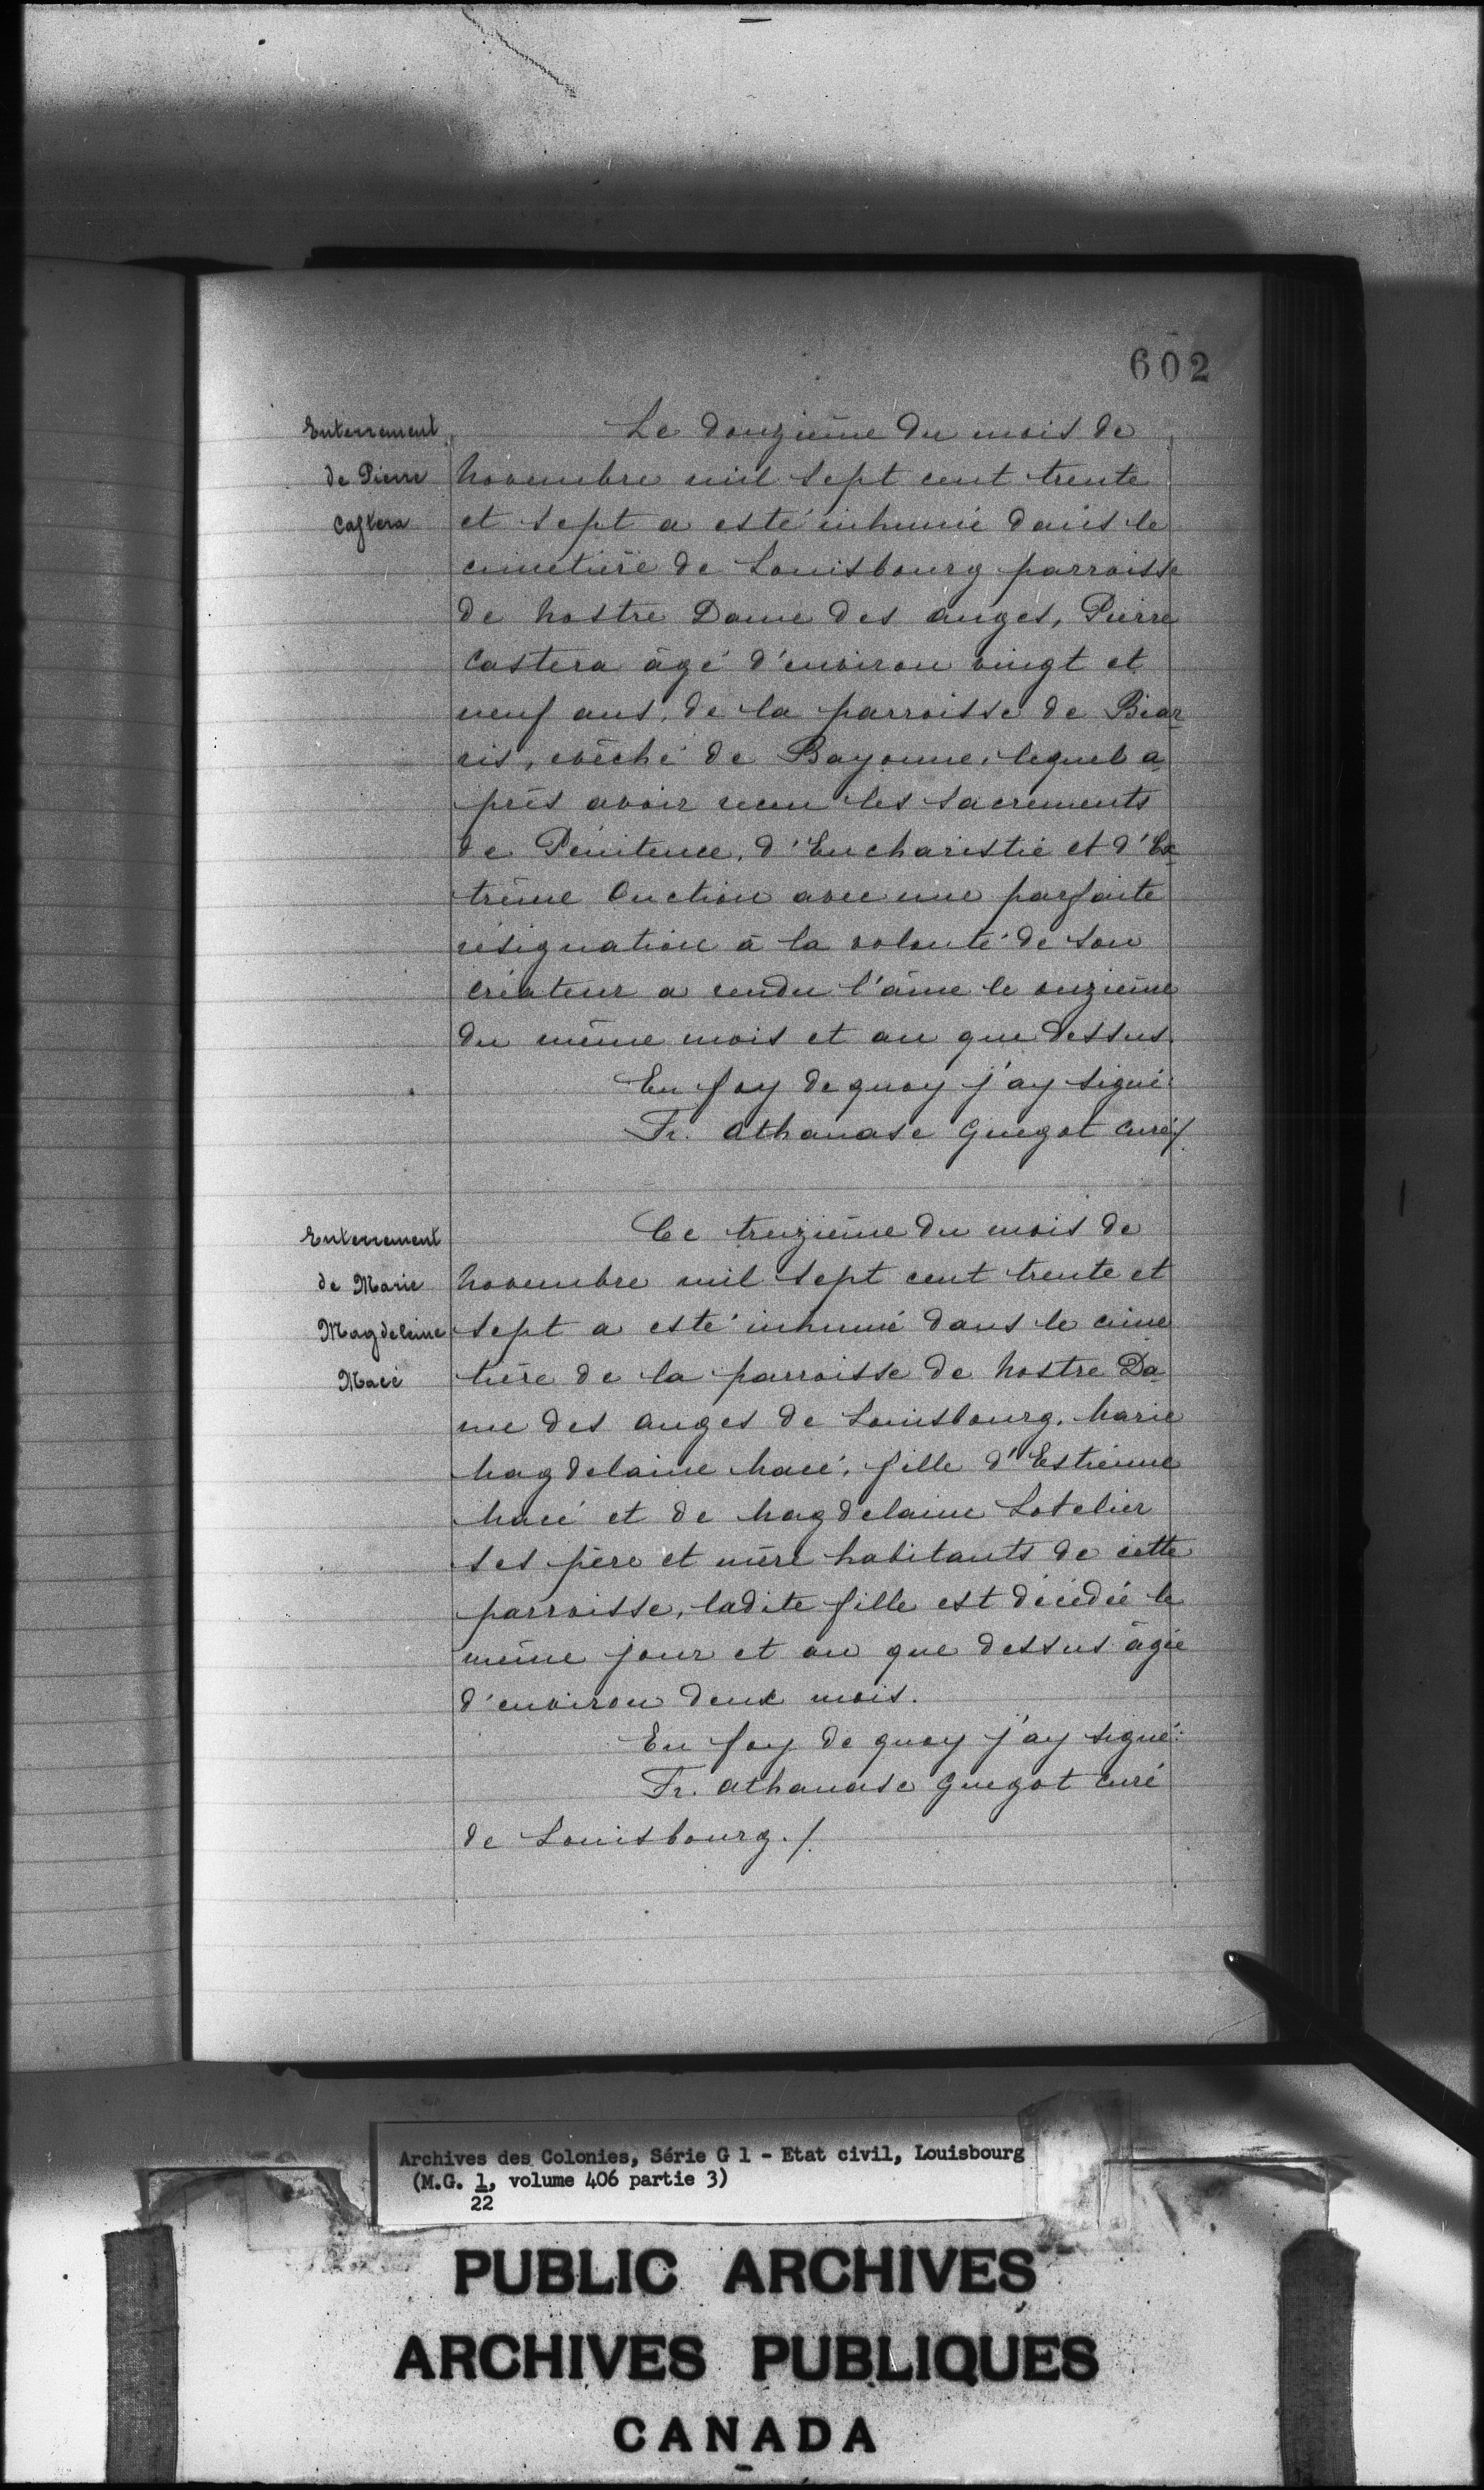 602
Enterrement
de Pierre
Castera
Le douzième du mois de
novembre mil sept cent trente
et sept a esté inhumé dans le
cimetière de Louisbourg parroisse
de nostre Dame des anges, Pierre
Castera âgé d'environ vingt et
neuf ans, de la parroisse de Biar
ris, evêché de Bayonne, lequel a
près avoir receu les sacrements
de Pénitence, d'Eucharistie et d'Ex
trême Onction avec une parfaite
résignation à la volonté de son
créateur a rendu l'âme le onzième
du même mois et an que dessus.
En foy de quoy j'ay signé:
Fr. Athanase Guegot curé/.
Enterrement
de Marie
Magdeleine
Macé
Ce treizième du mois de
novembre mil sept cent trente et
sept a esté inhumé dans le cime
tière de la parroisse de nostre Da
me des anges de Louisbourg, marie
magdelaine macé, fille d'Estienne
macé et de magdelaine Lotelier
ses père et mère habitants de cette
parroisse, ladite fille est décédée le
même jour et an que dessus âgée
d'environ deux mois.
En foy de quoy j'ay signé:
Fr. athanase Guegot curé
de Louisbourg./.
Archives des Colonies, Série G 1 - Etat civil, Louisbourg
(M.G. 1, volume 406 partie 3)
22
PUBLIC ARCHIVES
ARCHIVES PUBLIQUES
CANADA